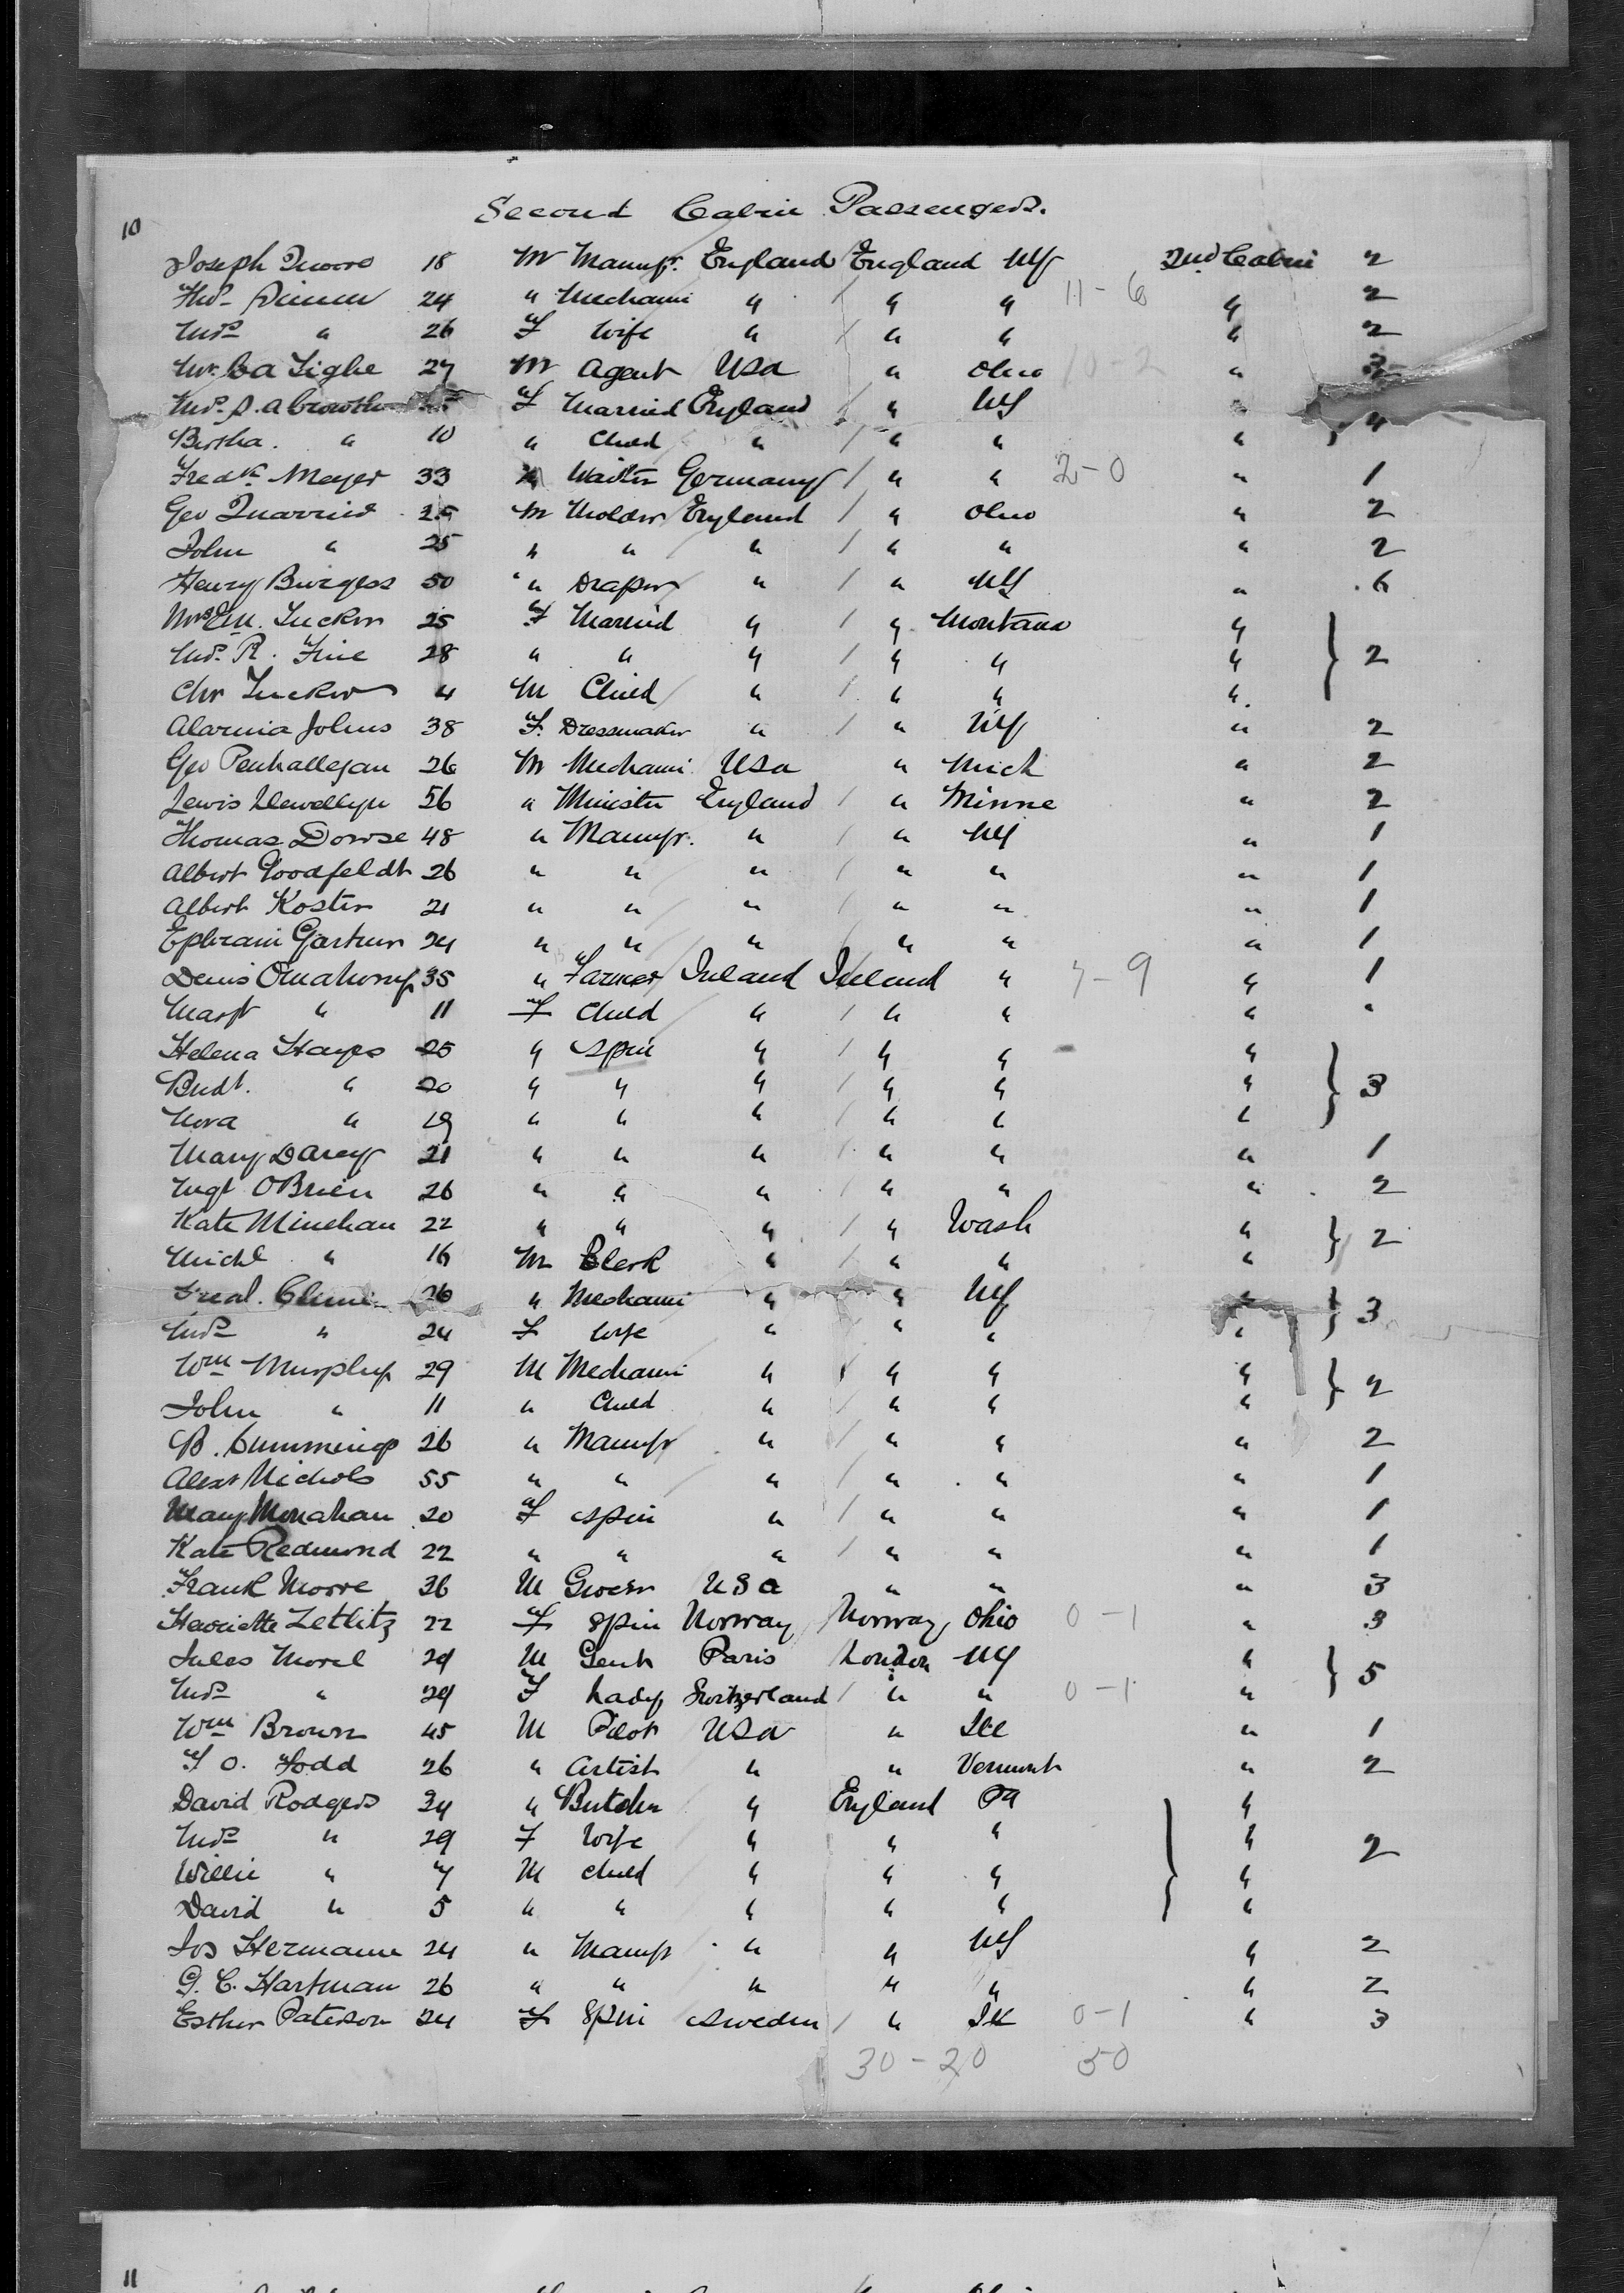 10
Second Cabin Passengers.
Joseph 18 M Manufr. England / England NY 2nd Cabin 2
Thos 24 " Mechanic " / " " 11-6 " 2
Mrs " 26 F Wife " / " " " 2
Mr. Ca Tighe 27 M Agent USA " Ohio " 3
Mrs. S. A F Married England / " NY " 4
Bertha. " 10 " Child " / " " " }
Fredk Meyer 33 M Waiter Germany / " " 2-0 " 1
Geo 25 M Molder England / " Ohio " 2
John " 25 " " " / " " " 2
Henry Burgess 50 " Draper " / " NY " 6
Mrs EM. Tucker 25 F Married " / " Montana "
Mrs. R. Fine 28 " " " / " " " } 2
Chr Tucker 4 M Child " / " " "
Alarmia Johns 38 F. Dressmaker " / " NY " 2
Geo Penhallegan 26 M Mechanic USA " Mich " 2
Lewis Llewellyn 56 " Minister England / " Minne " 2
Thomas Dowse 48 " Manufr. " / " NY " 1
Albert Goodfeldt 26 " " " / " " " 1
Albert Koster 21 " " " / " " " 1
Ephraim Gartner 24 " " " / " " " 1
Denis Omahony 35 " Farmer Ireland Ireland " 7-9 " 1
Margt " 11 F Child " / " " " "
Helena Hayes 25 " Spin " / " " "
Bridt. " 20 " " " / " " " } 3
Nora " 19 " " " / " " "
Mary Darcy 21 " " " / " " " 1
Mgt OBrien 26 " " " / " " " 2
Kate Minehan 22 " " " / " Wash " } 2
Michl " 16 M Clerk " / " " "
26 " Mechanic " " NY " } 3
Mrs " 24 F Wife " " " "
Wm Murphy 29 M Mechanic " / " " " } 2
John " 11 " Child " / " " "
B. Cummings 26 " Manufr " / " " " 2
Alexr Nichols 55 " " " / " " " 1
Mary Monahan 20 F Spin " / " " " 1
Kate Redmond 22 " " " / " " " 1
Frank Moore 36 M Grocer USA " " " 3
Henriette Zetlitz 22 F Spin Norway / Norway Ohio 0-1 " 3
Jules Morel 29 M Gent Paris / London NY " } 5
Mrs " 29 F Lady Switzerland / " " 0-1 "
Wm Brown 45 M Pilot USA " Ill " 1
F O. Todd 26 " Artist " " Vermont " 2
David Rodgers 34 " Butcher " England Pa "
Mrs " 29 F Wife " " " } " 2
Willie " 7 M Child " " " "
David " 5 " " " " " "
Jos Hermann 24 " Manufr " " NY " 2
G. C. Hartman 26 " " " " " " 2
Esther Paterson 24 F Spin Sweden / " Ill 0-1 " 3
30-20 50
11